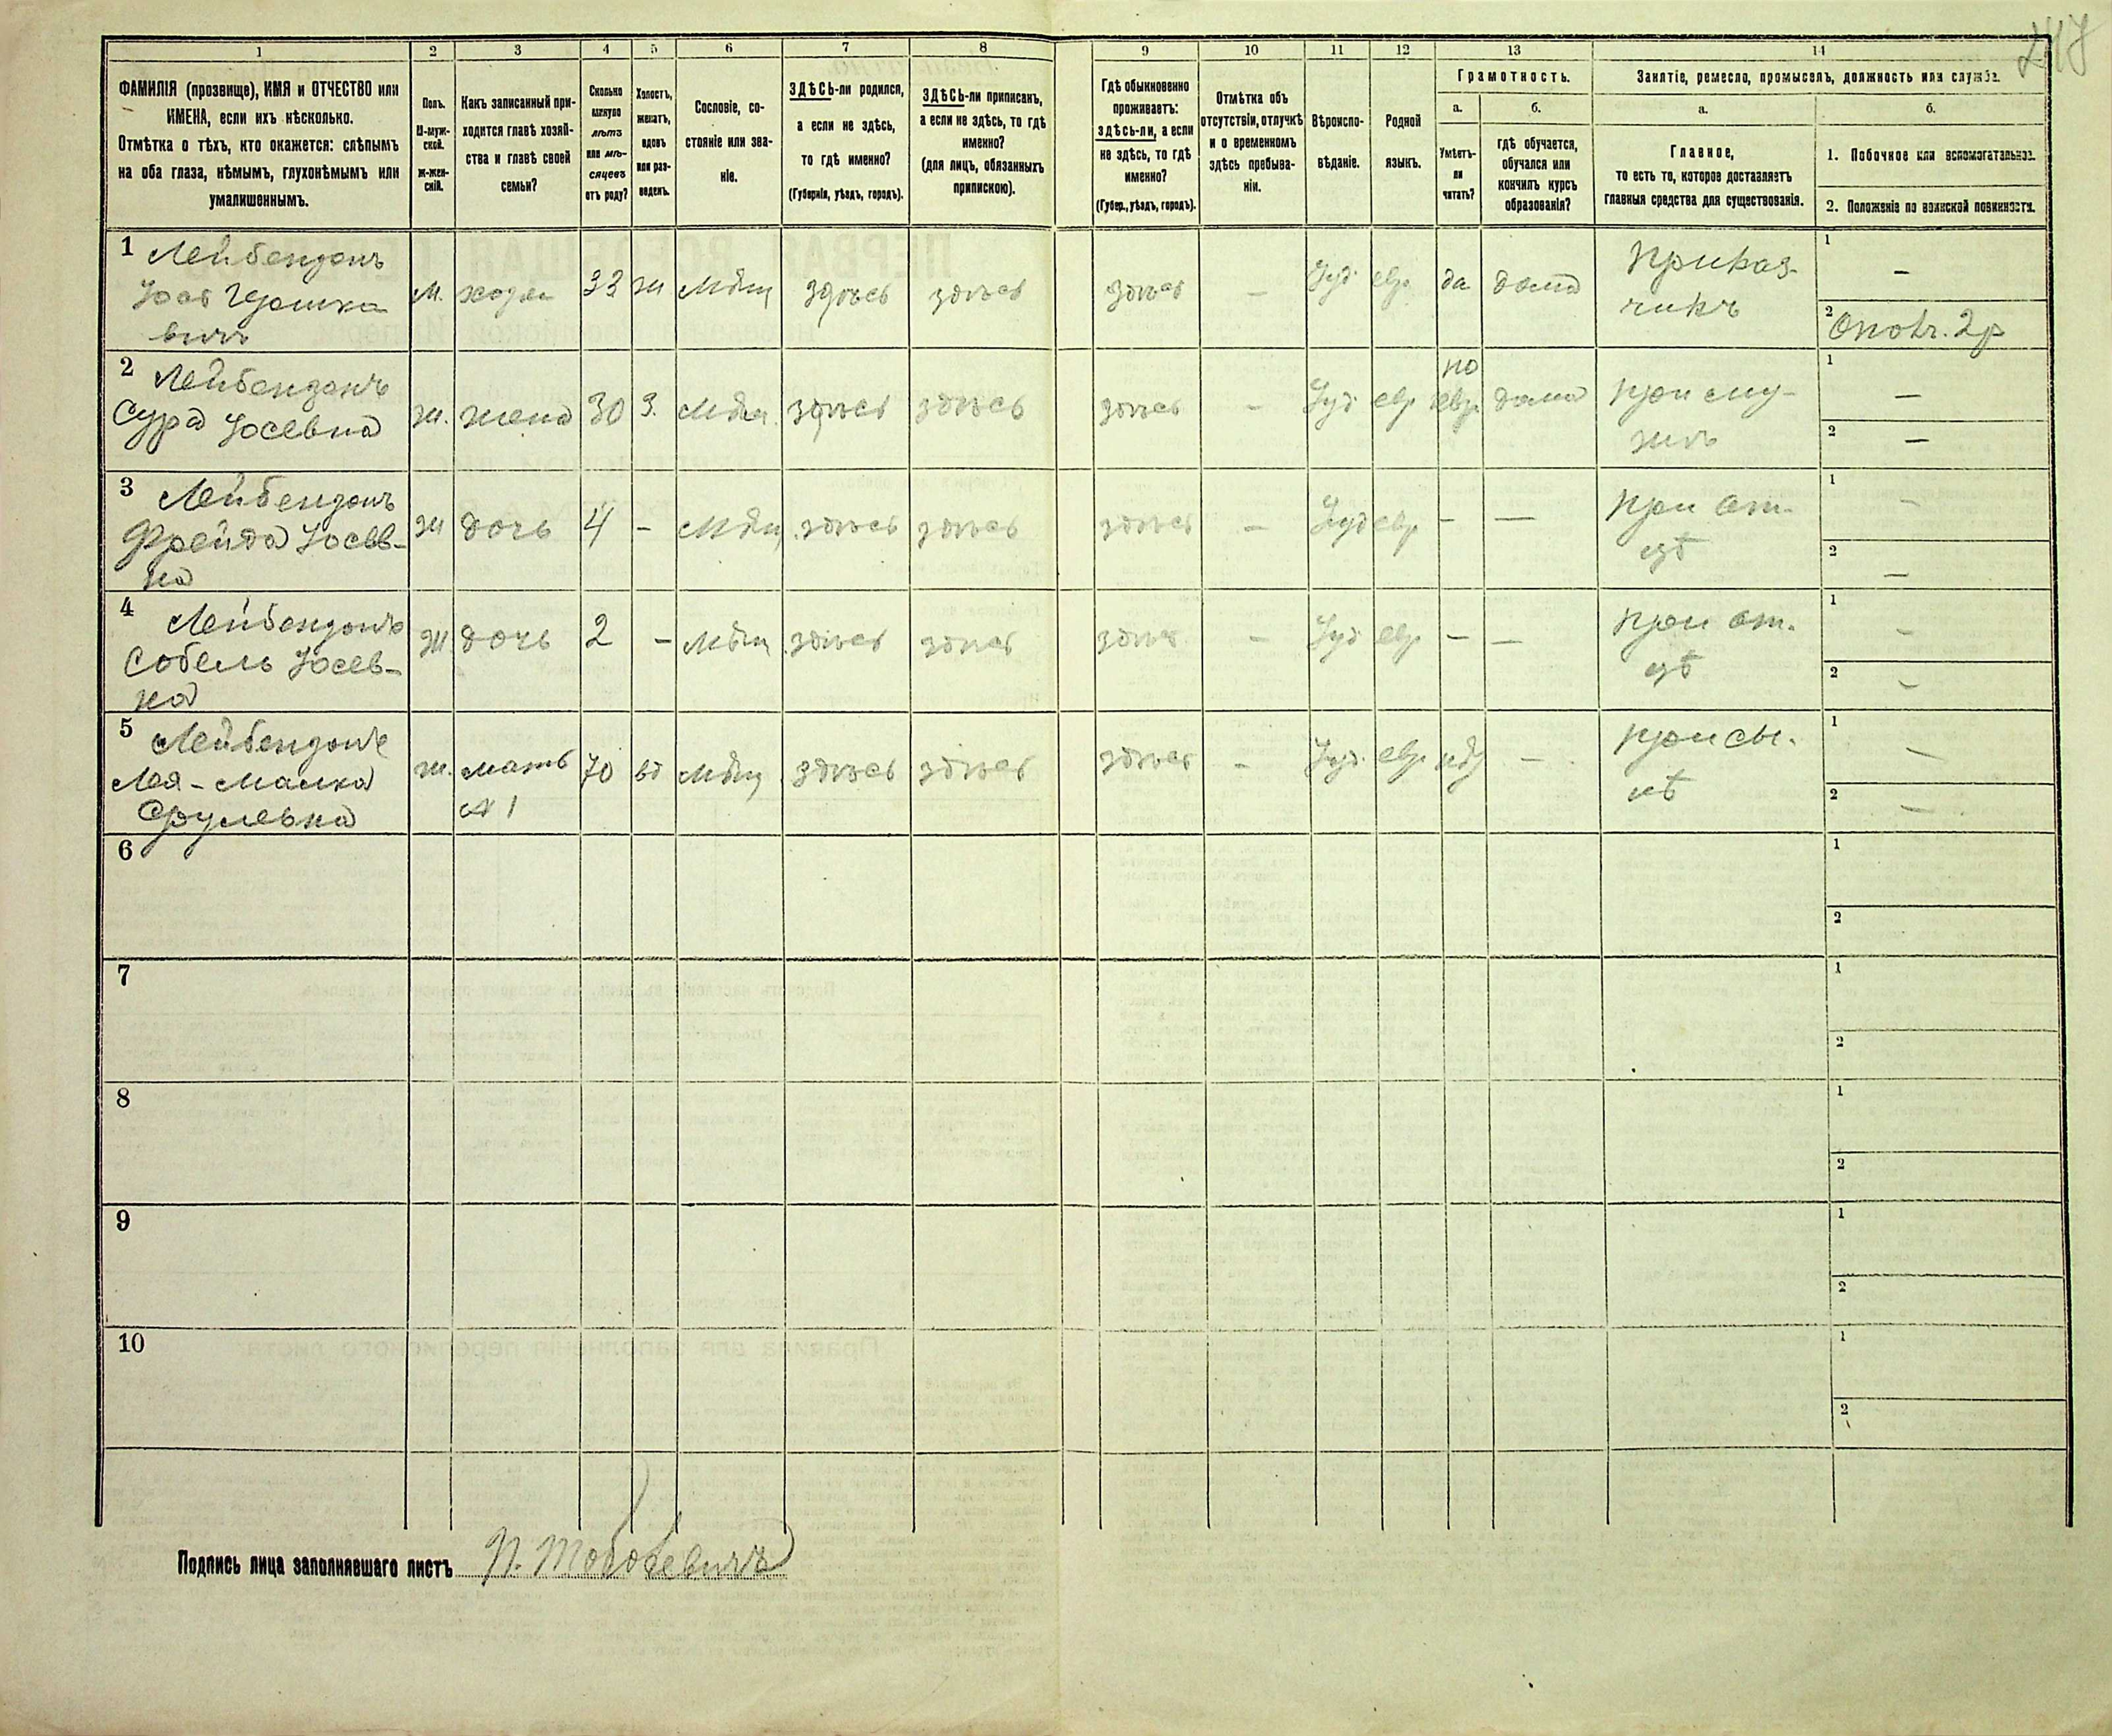 247
1 2 3 4 5 6 7 8 9 10 11 12 13 14
ФАМИЛІЯ (прозвище), ИМЯ и ОТЧЕСТВО или
ИМЕНА, если ихъ нѣсколько.
Отмѣтка о тѣхъ, кто окажется: слѣпымъ
на оба глаза, нѣмымъ, глухонѣмымъ или
умалишеннымъ.
Полъ.
М-муж-
ской.
ж-жен-
скій.
Какъ записанный при-
ходится главѣ хозяй-
ства и главѣ своей
семьи?
Сколько
минуло
лѣтъ
или мѣ-
сяцевъ
отъ роду?
Холостъ,
женатъ,
вдовъ
или раз-
веденъ.
Сословіе, со-
стояніе или зва-
ніе.
ЗДѢСЬ-ли родился,
а если не здѣсь,
то гдѣ именно?
(Губернія, уѣздъ, городъ).
ЗДѢСЬ-ли приписанъ,
а если не здѣсь, то гдѣ
именно?
(для лицъ, обязанныхъ
припискою).
Гдѣ обыкновенно
проживаетъ:
здѣсь-ли, а если
не здѣсь, то гдѣ
именно?
(Губер., уѣздъ, городъ).
Отмѣтка объ
отсутствіи, отлучкѣ
и о временномъ
здѣсь пребыва-
ніи.
Вѣроиспо-
вѣданіе.
Родной
языкъ.
Грамотность.
а.
Умѣетъ-
ли
читать?
б.
гдѣ обучается,
обучался или
кончилъ курсъ
образованія?
Занятіе, ремесло, промыселъ, должность или служба.
а.
Главное,
то есть то, которое доставляетъ
главныя средства для существованія.
б.
1. Побочное или вспомогательное.
2. Положеніе по воинской повинности.
1 Лейбензонъ м. хозяи 33 ж Мѣщ здѣсь здѣсь здѣсь – Іуд. евр. да дома Приказ- 1 –
чикъ 2 Ополч. 2 р
вичъ
2 Лейбензонъ ж. жена 30 з. Мѣщ. здѣсь здѣсь здѣсь – Іуд евр по дома при му- 1 –
Сура Іосевна евр. 2 –
3 Лейбензонъ ж дочь 4 – Мѣщ. здѣсь здѣсь здѣсь – Іуд евр – – при от- 1 –
Фрейда Іосев- цѣ 2 –
на
4 Лейбензонъ ж дочь 2 – Мѣщ. здѣсь здѣсь здѣсь – Іуд евр – – при от- 1 –
Собель Іосев- цѣ 2 –
на
5 Лейбензонъ ж. мать 70 вд Мѣщ здѣсь здѣсь здѣсь – Іуд. евр. – при сы- 1 –
Лея-Малка № 1 нѣ 2 –
Срулевна
6 1
2
7 1
2
8 1
2
9 1
2
10 1
2
Подпись лица заполнявшаго листъ